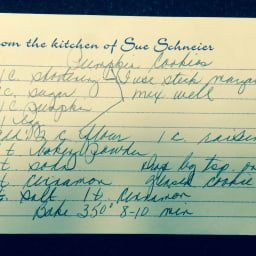 om the kitchen of Sue Schneier
Pumpkin Cookies
1 C. shortening I use stick margar
C. sugar mix well
1 C pumpkin
1 egg
add: 2 C flour 1 C. raisin
1 t baking powder
t soda Drop by tsp. on
t cinnamon greased cookie
t. salt 1 t. cinnamon
Bake 350° 8-10 min